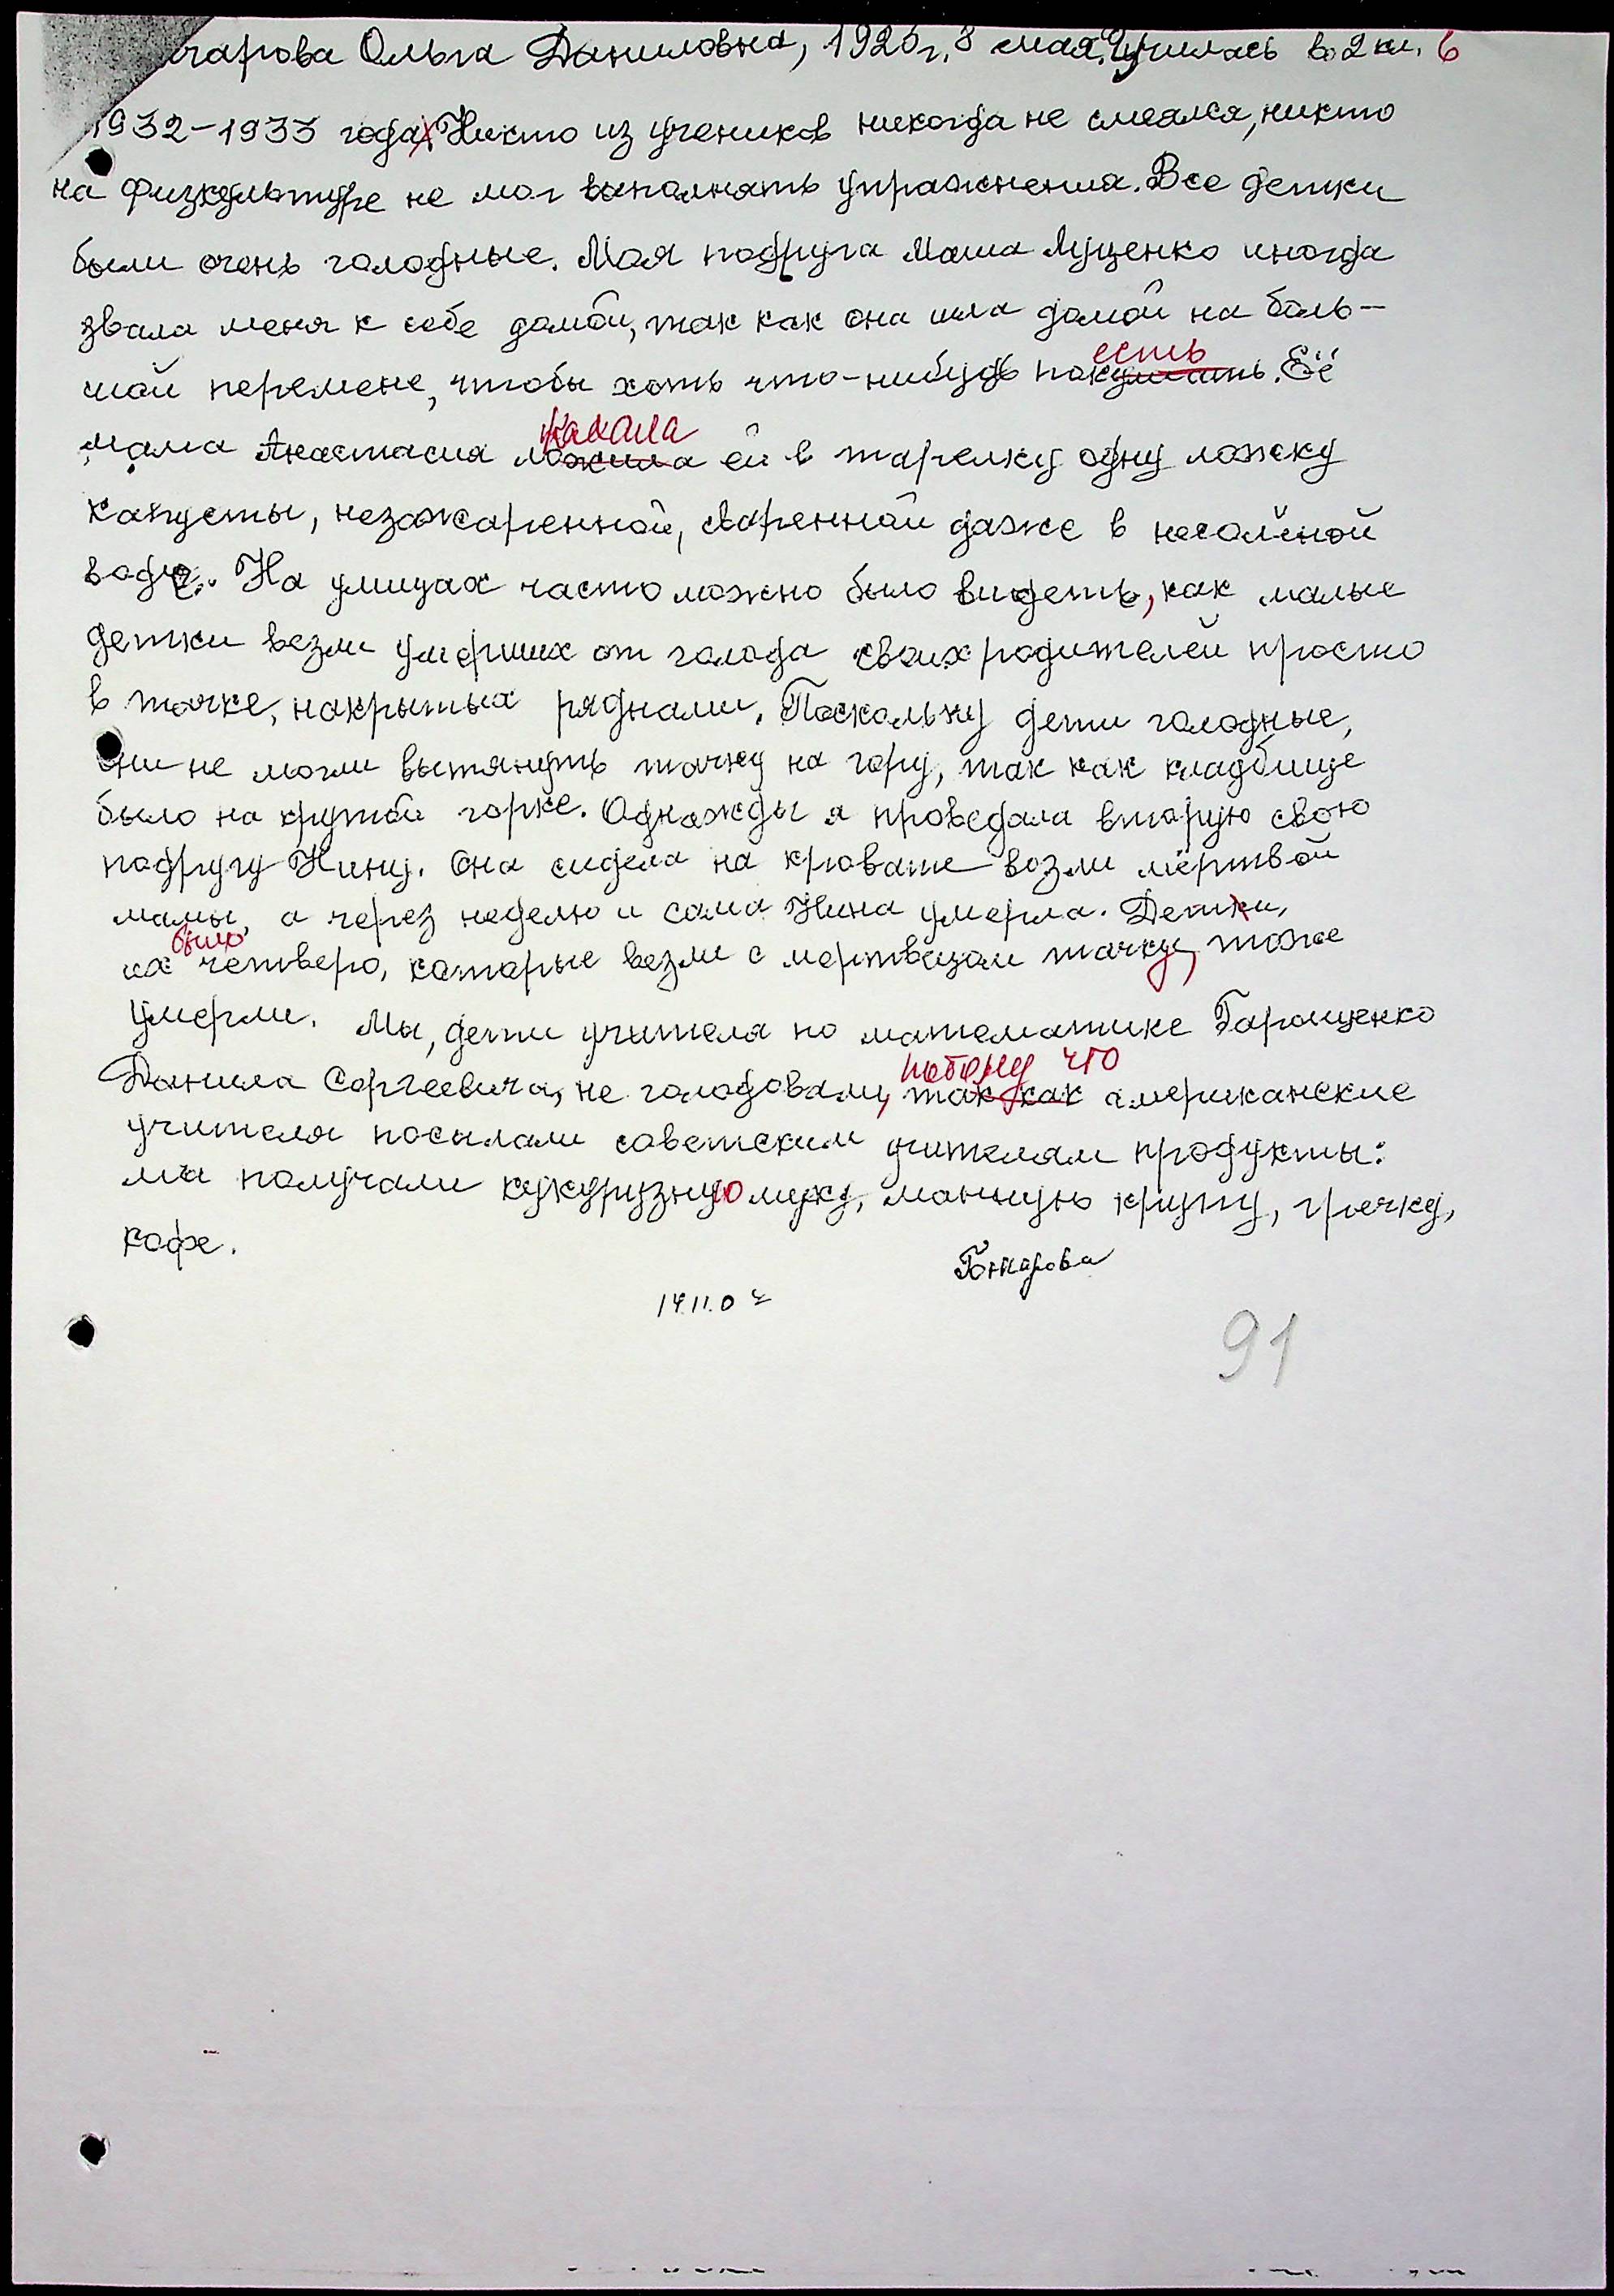 чарова Ольга Даниловна, 1925 г. 8 мая. Училась во 2 кл. в
1932-1933 годах. Никто из учеников никогда не смеялся, никто
на физкультуре не мог выполнять упражнения. Все детки
были очень голодные. Моя подруга Маша Луценко иногда
звала меня к себе домой, так как она шла домой на боль-
шой перемене, чтобы хоть что-нибудь покушать. Её
есть
мама Анастасия ложила ей в тарелку одну ложку
клала
капусты, незажаренной, сваренной даже в несолёной
воде.. На улицах часто можно было видеть, как малые
детки везли умерших от голода своих родителей просто
в тачке, накрытых ряднами. Поскольку дети голодные,
они не могли вытянуть тачку на гору, так как кладбище
было на крутой горке. Однажды я проведала вторую свою
подругу Нину. Она сидела на кровате возли мёртвой
мамы, а через неделю и сама Нина умерла. Детки,
было
их четверо, которые везли с мертвецом тачку, тоже
умерли. Мы, дети учителя по математике Гарощенко
Данила Сергеевича, не голодовали, так как американские
потому что
учителя посылали советским учителям продукты:
мы получали кукурузную муку, манную крупу, гречку,
кофе.
Гончарова
14.11.0
91